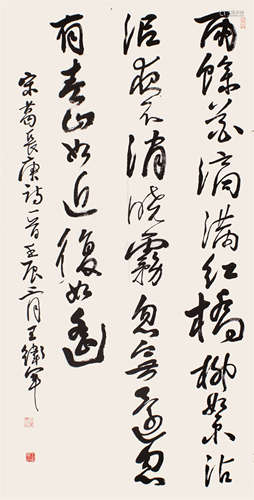 雨餘花滴满红橋柳絮沾
泥夜不消曉霧忽無還忽
有春山如近復如遥
宋葛長庚詩一首壬辰二月王衛軍